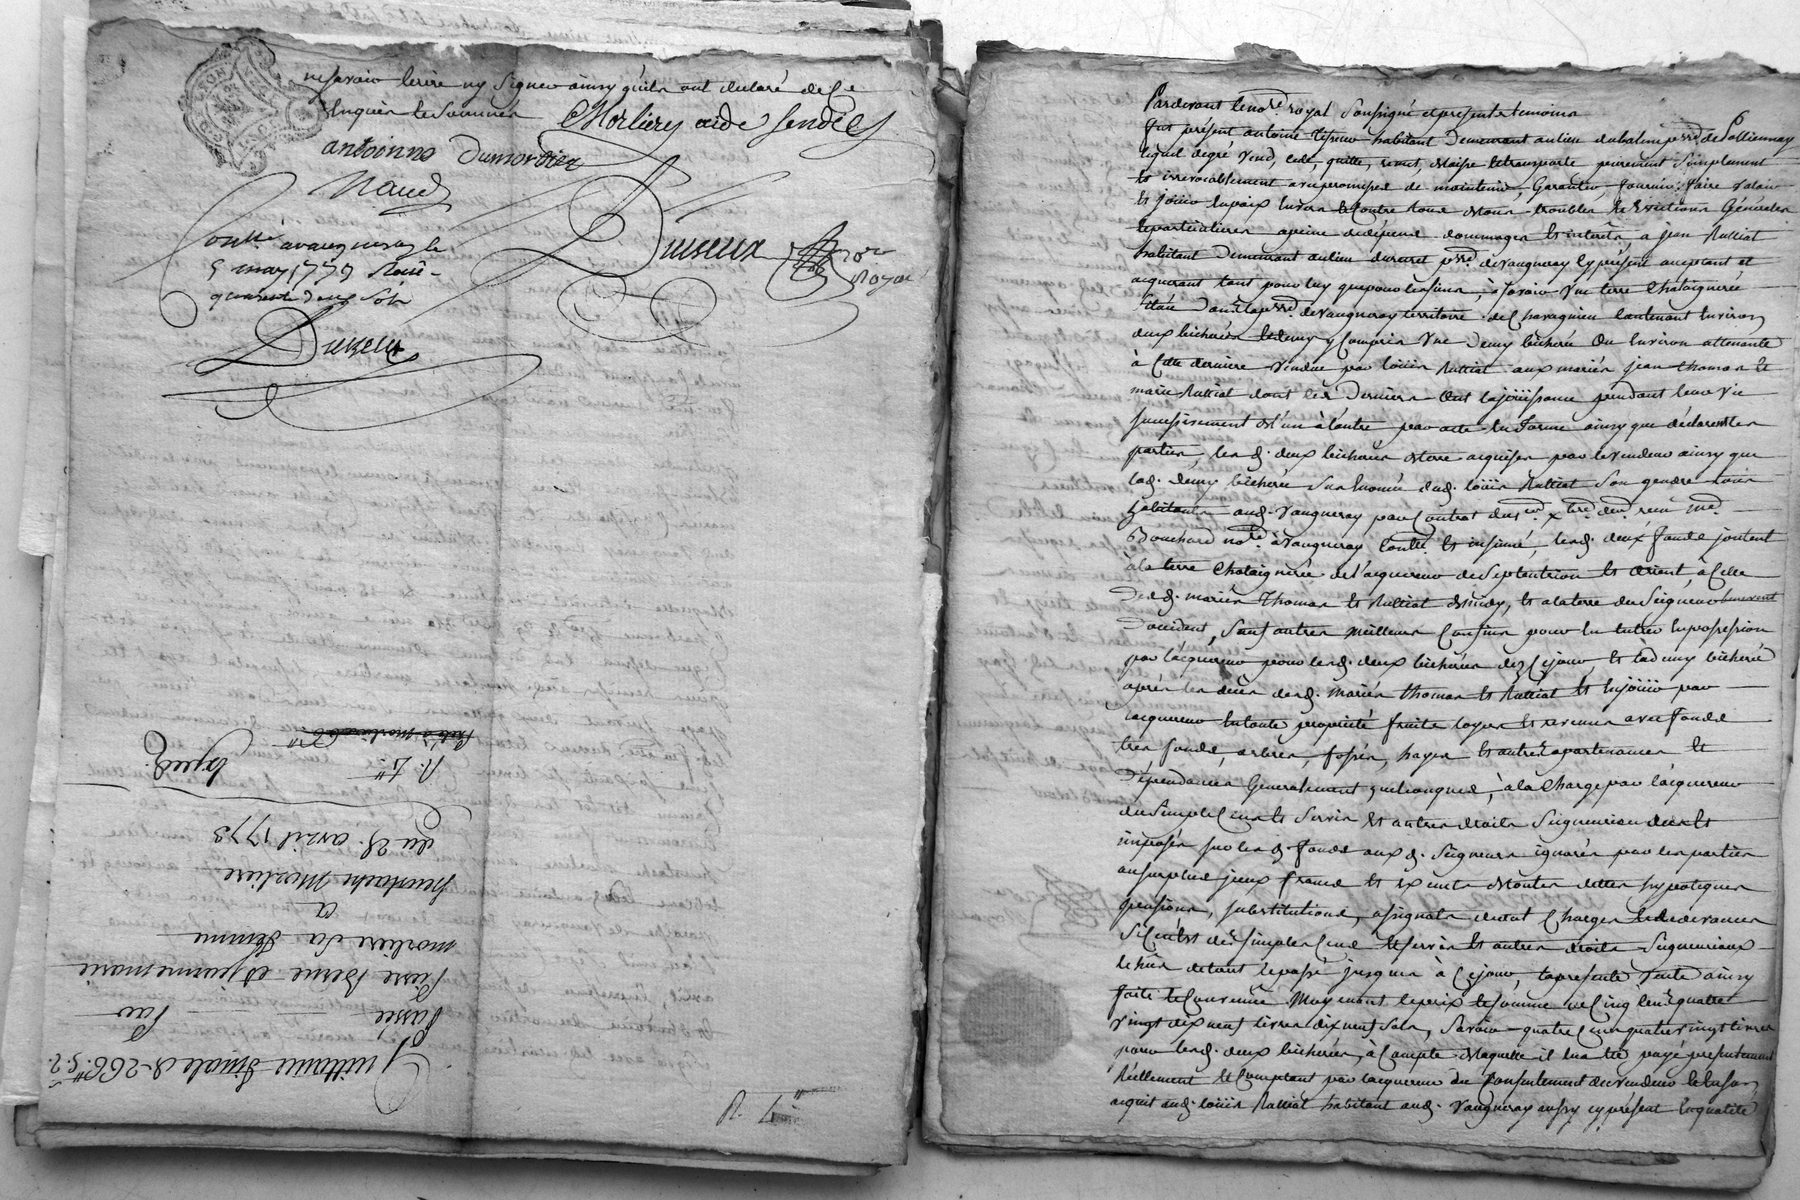 ne savoir lerire ny Signer ainsy qu'ils ont declaré de Ce
Enquis et Sommés Morlier aide Sendil
antoinne Dumortier
Naud
Duseux nore Royal
Conllé a vaugneray le
5 may 1773 Reçu
quarente deux Sols
Duseux
Quittance finale de 266 ll 5 s 2
Passée Par
Pierre Berne et Jeanne marie
morliere Sa femme
a
Eustache Morliere
du 28 avril 1773
R. L.
Exped.
Pardevant le nore royal Soussigné et presents temoins
fut présent antoine habitant Demeurant au lieu du parr. de Pollionnay
lequel degré vend, cede, quitte, remet, delaisse et transporte purement Simplement
et irrevocablement avec promesse de maintenir, Garantir fournir, faire valoir
et jouir en paix envers et Contre tous de tous troubles et Evictions Généralles
et particulieres a peine de depens dommages et interets, a jean Ratliat
habitant Demeurant au lieu du parr. de vaugneray Cy présent acceptant et
acquerant tant pour luy que pour les siens, à Savoir une terre Chataigneré
Située dans la parr. de vaugneray territoire de Charagnieu Contenant Environ
deux bicherées et demy y Compris une Demy bicheré ou Environ attenante
à Cette derniere vendue par loüis Ratliat aux mariés jean thomas et
marie Ratliat dont les Derniers Ont la joüissance pendant leur vie
Successivement de l'un à l'autre par acte en forme ainsy que déclarent les
parties, les d. deux bicherées de terre acquises par le vendeur ainsy que
lad. demy bicherée Sur honoré dud. loüis Ratliat Son gendre
habitants aud. vaugneray par Contrat du xbre der. reçu Me
Bouchard nore à vaugneray Conllé et insinué, lesd. deux fonds joutent
à la terre Chataignerée de l'acquereur de Septentrion et Orient, à Celle
Desd. mariés Thomas et Ratliat de midy, et a la terre du Seigneur
D'occident, Sauf autres meilleurs Confins pour en entrer en possession
par l'acquereur pour lesd. deux bicherées dez Cejour, et lad demy bicherée
aprés les deces desd. mariés thomas et Ratliat et en joüir par
l'acquereur en toute proprieté fruits loyers et revenus avec fonds
tres fonds, arbres, fossés, hayes et autres apartenances et
Dépendances Generalement quelconques, à la Charge par l'acquereur
du Simple Cens et Servis et autres droits Seigneuriau deubs et
imposés sur lesd. fonds aux d. Seigneurs ignorés par les parties
au surplus jceux francs et exempts de toutes dettes hypoteques
pensions, substitutions, assignats de tout Charges et redevances
Si Ce n'est des simples Cens et servis et autres droits Seigneuriaux
de tout le passé jusques à Cejour, la presente vente ainsy
faite et Convenue Moyenant le prix et somme de Cinq Cent quatre
vingt dix neuf livres dix neuf Sols, Savoir quatre Cent quatre vingt livres
pour lesd. deux bicherées, à Compte de laquelle il en a été payé présentement
Réellement et Comptant par l'acquereur du Consentement du vendeur
acquit aud. loüis Ratliat habitant aud. vaugneray aussy cy présent En qualité